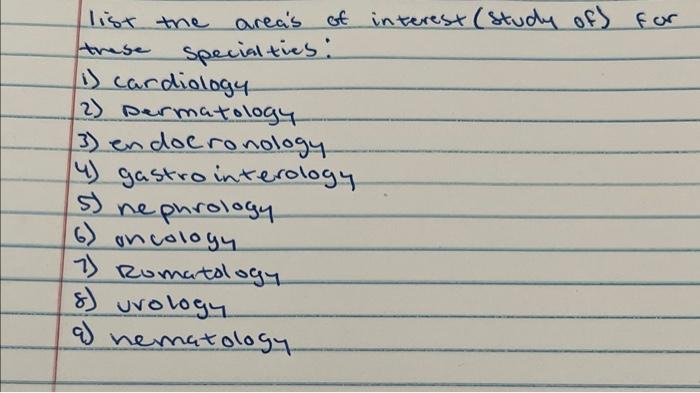 list the area's of interest (study of) for
these specialties:
1) cardiology
2) Dermatology
3) endocronology
4) gastrointerology
5) nephrology
6) oncology
7) Romatology
8) urology
9) hematology